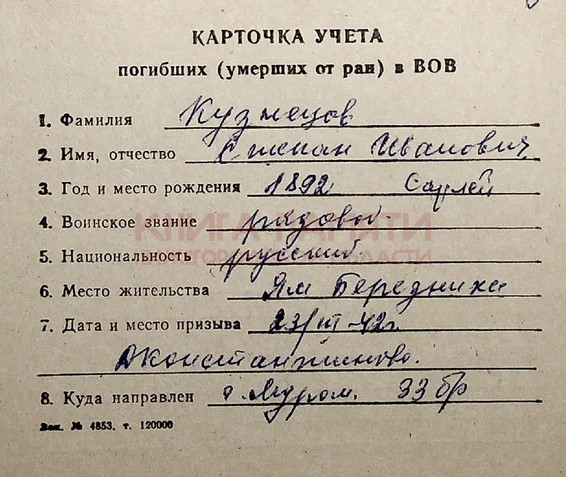 КАРТОЧКА УЧЕТА
погибших (умерших от ран) в ВОВ
1. Фамилия Кузнецов
2. Имя, отчество Степан Иванович
3. Год и место рождения 1892 Сарлей
4. Воинское звание рядовой
5. Национальность русский
6. Место жительства Ям Березники
7. Дата и место призыва 23/III-42г.
Дконстантиново.
8. Куда направлен г. Муром. 33 бр
Зак. № 4853, т. 120000
КНИГА ПАМЯТИ